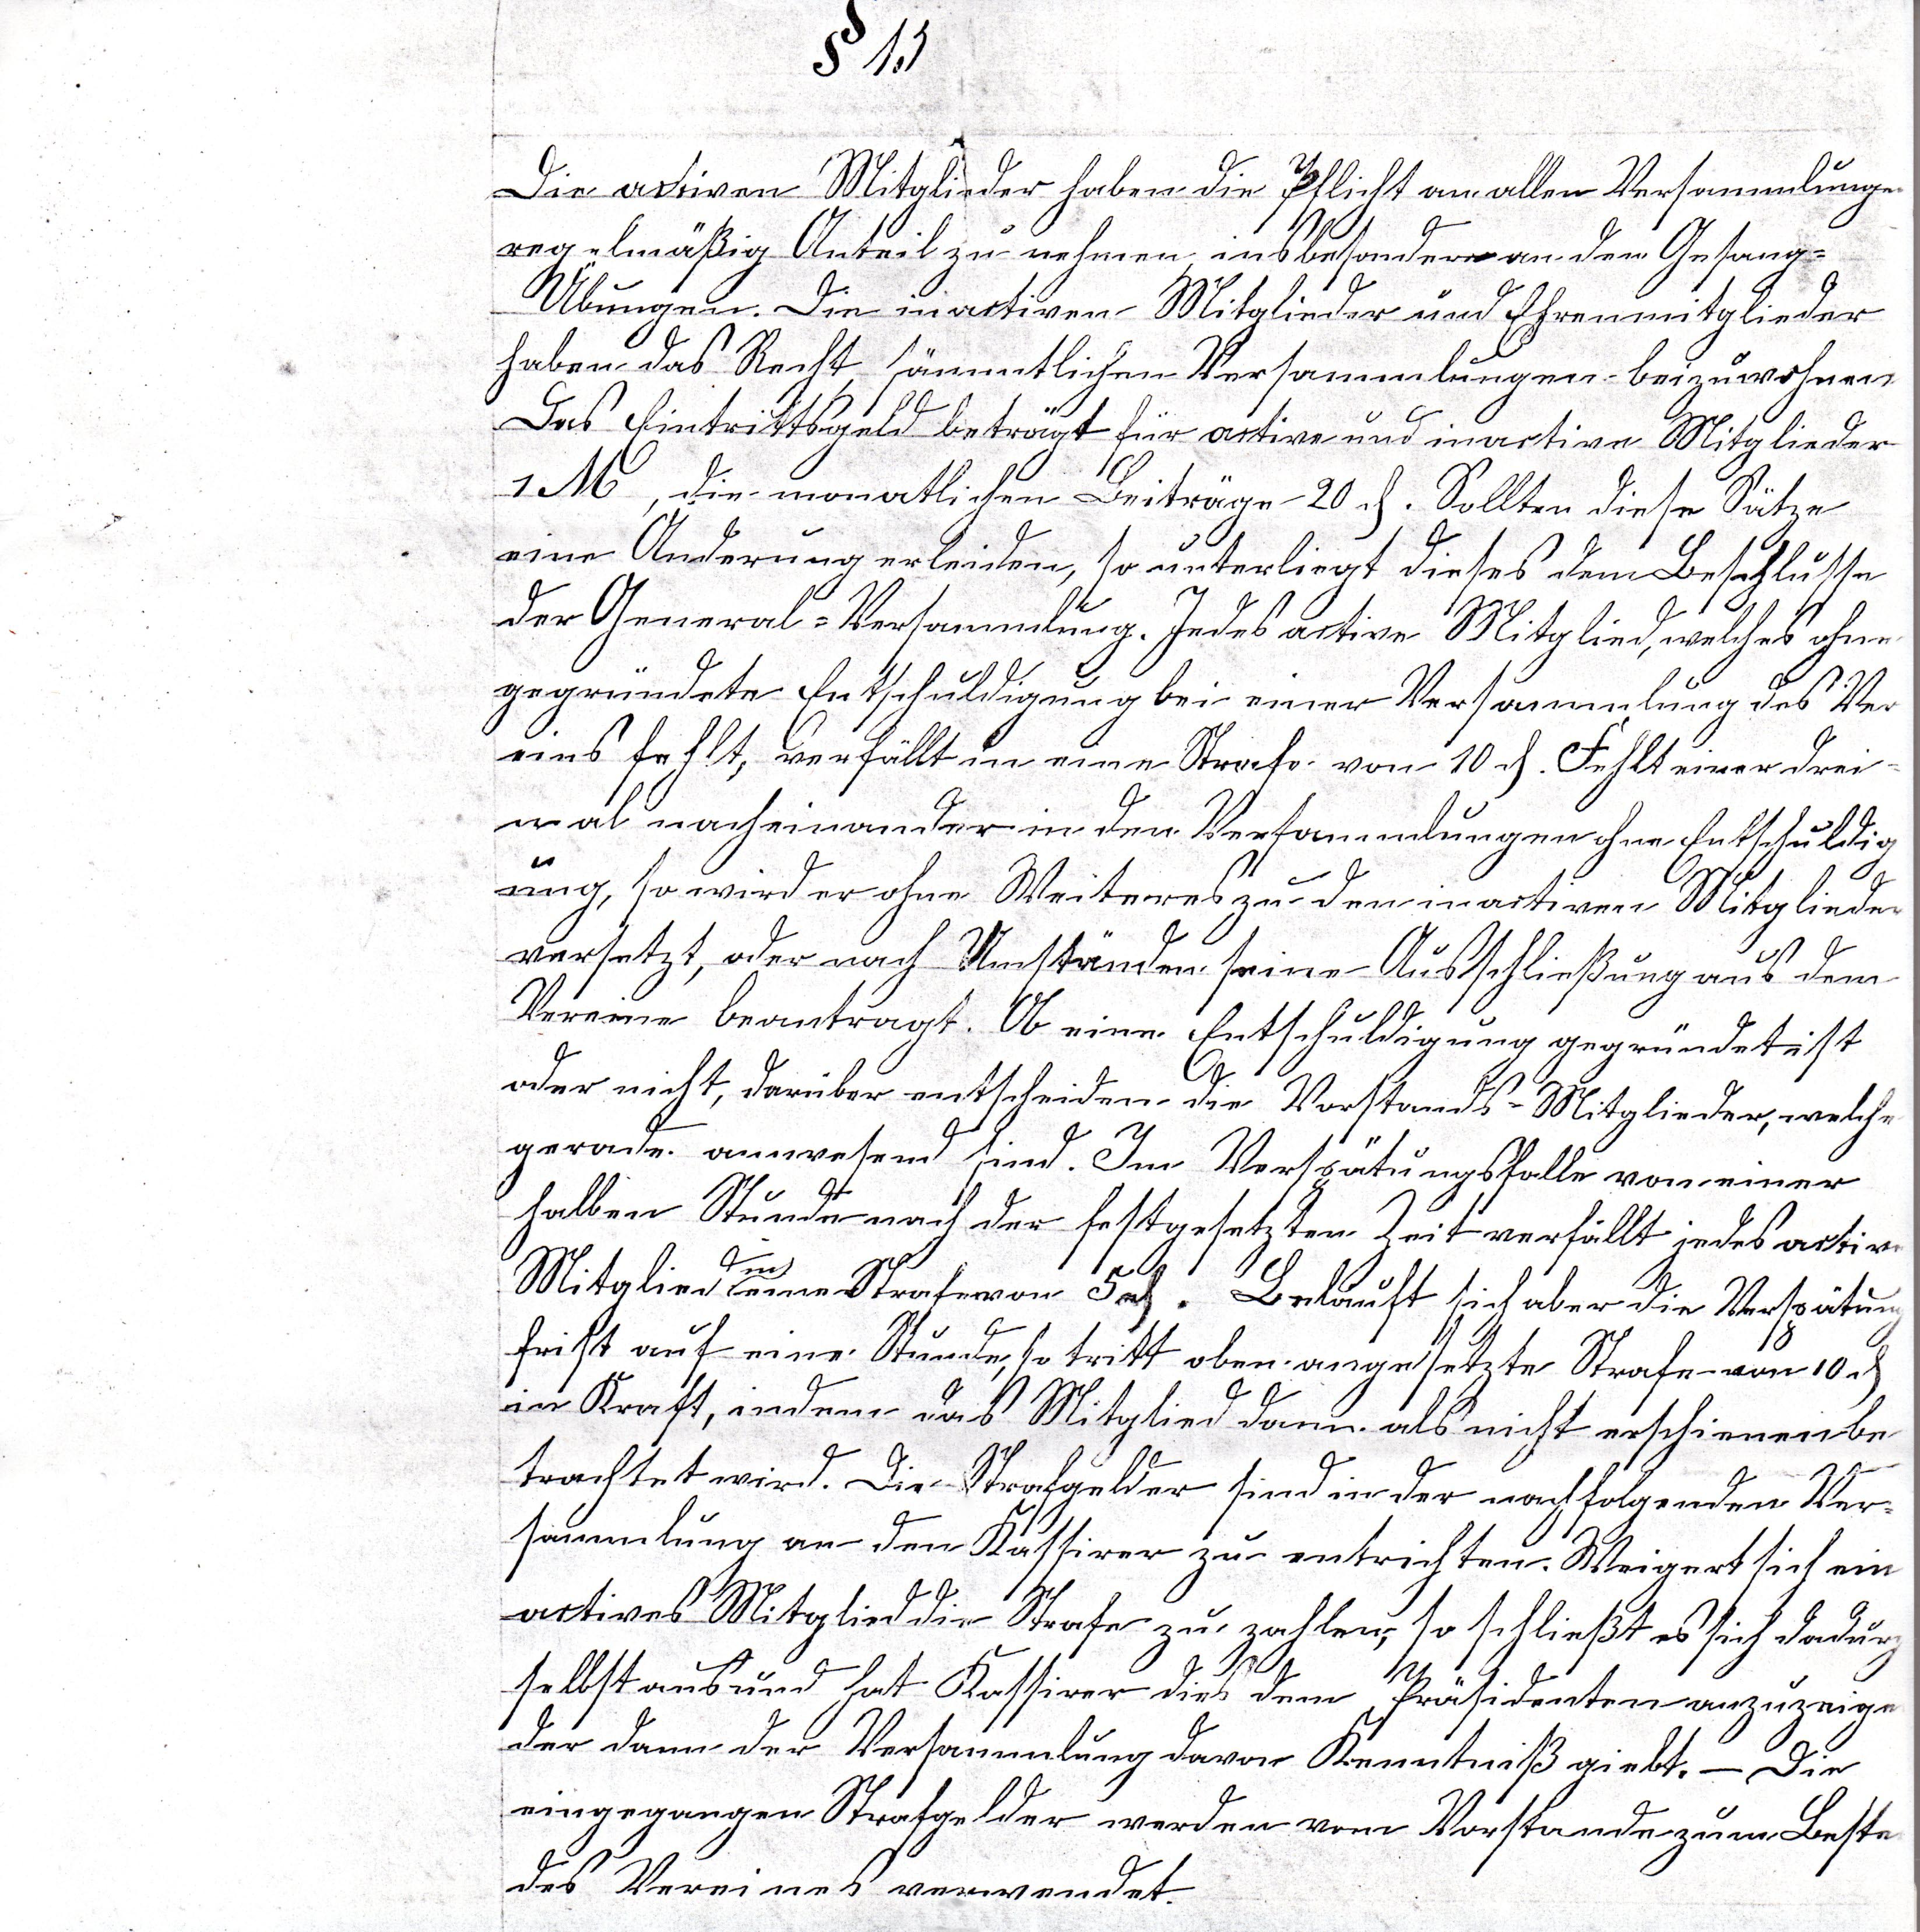 § 13
Die activen Mitglieder haben die Pflicht an allen Versammlunge
regelmäßig Anteil zu nehmen, insbesondere an den Gesang=
Übungen. Die inactiven Mitglieder und Ehrenmitglieder
haben das Recht, sämmtlichen Versammlungen beizuwohnen
Das Eintrittsgeld beträgt für active und inactive Mitglieder
1 M, die monatlichen Beiträge 20 ₰. Sollten diese Sätze
eine Änderung erleiden, so unterliegt dieses dem Beschlusse
der General=Versammlung. Jedes active Mitglied, welches ohne
gegründete Entschuldigung bei einer Versammlung des Ver
eins fehlt, verfällt in eine Strafe von 10 ₰. Fehlt einer drei-
mal nacheinander in den Versammlungen ohne Entschuldig
ung, so wird er ohne Weiteres zu den inactiven Mitglieder
versetzt, oder nach Umständen seine Ausschließung aus dem
Vereine beantragt. Ob eine Entschuldigung gegründet ist
oder nicht, darüber entscheiden die Vorstands-Mitglieder, welche
gerade anwesend sind. Im Verspätungsfalle von einer
halben Stunde nach der festgesetzten Zeit verfällt jedes active
Mitglied in eine Strafe von 5 ₰. Beläuft sich aber die Verspätung
frist auf eine Stunde, so tritt oben angesetzte Strafe von 10 ₰
in Kraft, indem das Mitglied dann als nicht erschienen be
trachtet wird. Die Strafgelder sind in der nachfolgenden Ver=
sammlung an den Kassirer zu entrichten. Weigert sich ein
actives Mitglied die Strafe zu zahlen, so schließt es sich dadurch
selbst aus und hat Kassirer dies dem Präsidenten anzuzeige
der dann der Versammlung davon Kenntniß giebt. — Die
eingegangen Strafgelder werden vom Vorstande zum Beste
des Vereines verwendet.